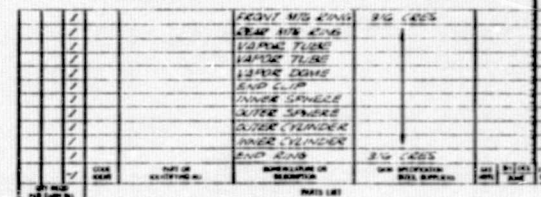 1 FRONT MTG RING 316 CRES
1 REAR MTG RING
1 VAPOR TUBE
1 VAPOR TUBE
1 VAPOR DOME
1 END CLIP
1 INNER SPHERE
1 OUTER SPHERE
1 OUTER CYLINDER
1 INNER CYLINDER
1 END RING 316 CRES
-1 CODE IDENT PART OR IDENTIFYING NO. NOMENCLATURE OR DESCRIPTION SPECIFICATION
QTY REQD PARTS LIST